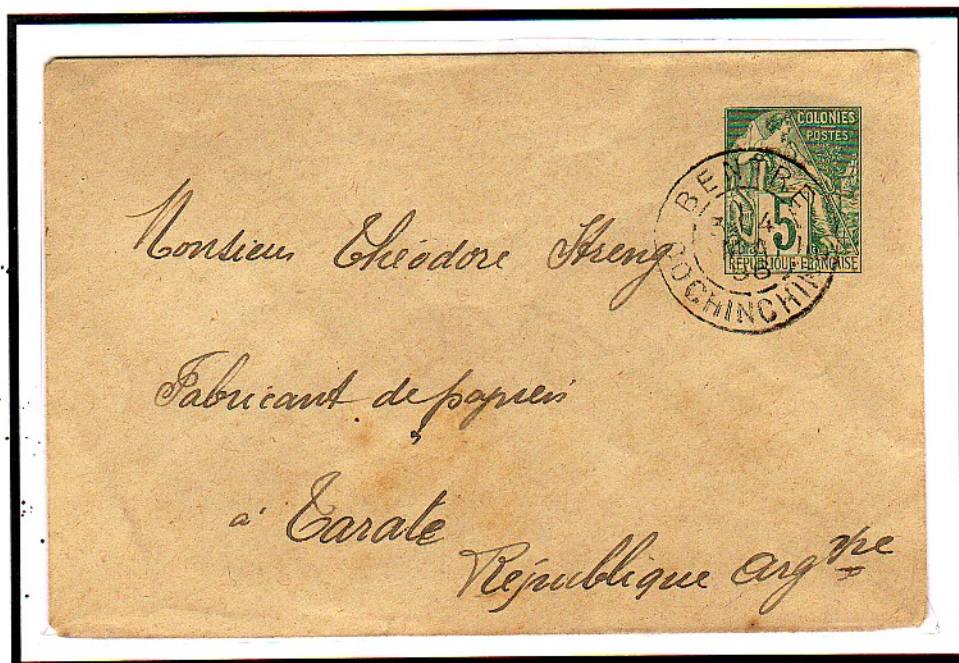 COLONIES
POSTES
5
RÉPUBLIQUE FRANÇAISE
BENTRE
4
COCHINCHINE
Monsieur Théodore
Fabricant de papiers
à Zarate
République Arg